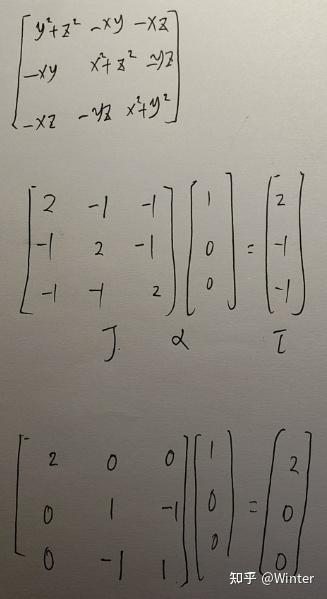 y²+z² -xy -xz
-xy x²+z² -yz
-xz -yz x²+y²
2 -1 -1 1 2
-1 2 -1 0 = -1
-1 -1 2 0 -1
J α τ
2 0 0 1 2
0 1 -1 0 = 0
0 -1 1 0 0
知乎 @Winter